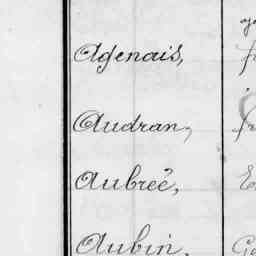 Agenais,
Audran,
Aubreé,
Aubin,